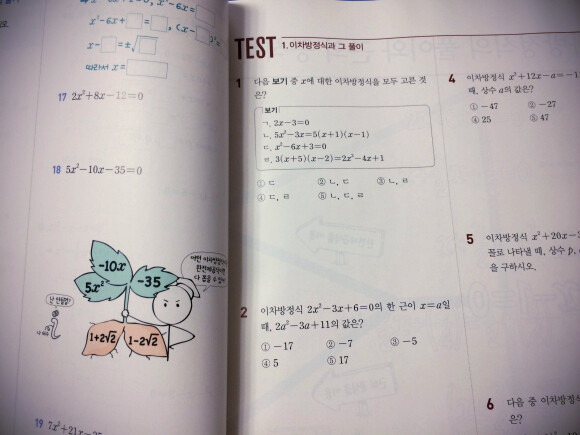 x²-6x+□=□, (x-□)²=
x-□=±√□
따라서 x=□
17 2x²+8x-12=0
18 5x²-10x-35=0
-10x
5x²
-35
1+2√2
1-2√2
어떤 이차방정식이든
완전제곱식이면
다 풀 수 있어!
난 안될걸?
19 7x²+21x
TEST 1. 이차방정식과 그 풀이
1 다음 보기 중 x에 대한 이차방정식을 모두 고른 것
은?
보기
ㄱ. 2x-3=0
ㄴ. 5x²-3x=5(x+1)(x-1)
ㄷ. x²-6x+3=0
ㄹ. 3(x+5)(x-2)=2x²-4x+1
① ㄷ ② ㄴ, ㄷ ③ ㄴ, ㄹ
④ ㄷ, ㄹ ⑤ ㄴ, ㄷ, ㄹ
2 이차방정식 2x²-3x+6=0의 한 근이 x=a일
때, 2a²-3a+11의 값은?
① -17 ② -7 ③ -5
④ 5 ⑤ 17
4 이차방정식 x²+12x-a=-1
때, 상수 a의 값은?
① -47 ② -27
④ 25 ⑤ 47
5 이차방정식 x²+20x-
꼴로 나타낼 때, 상수 p,
을 구하시오.
6 다음 중 이차방정식
은?